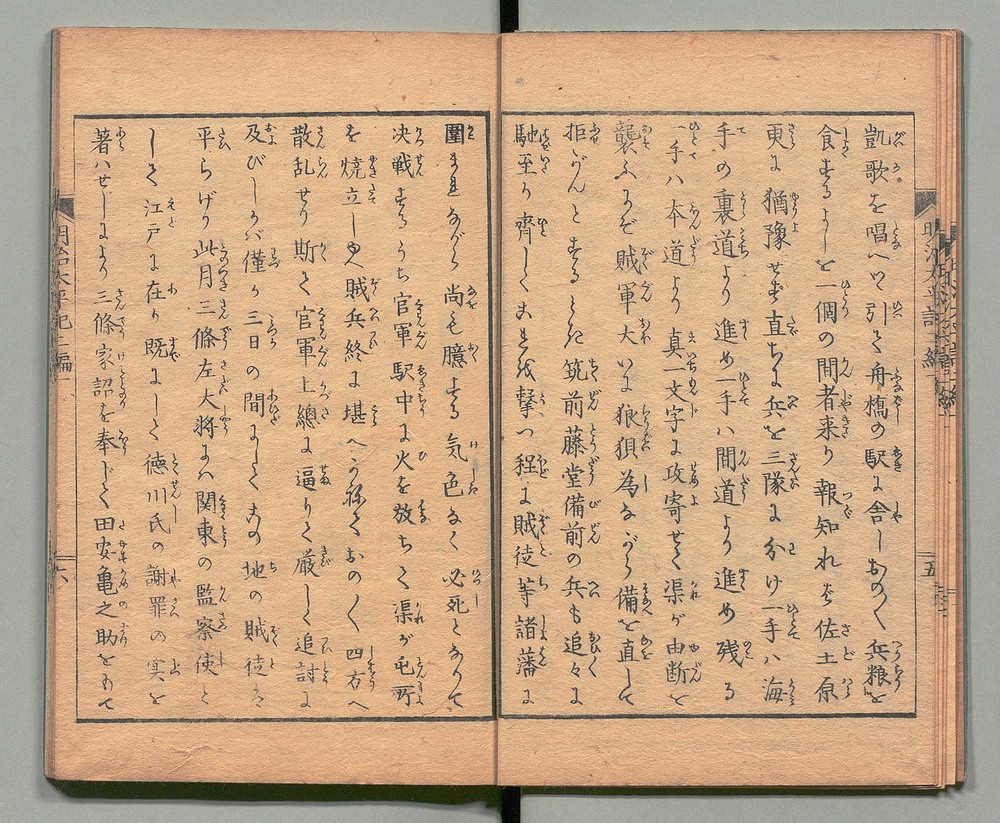 凱歌を唱へつゝ引て舟橋の駅に舎しおの〳〵兵粮を
食するよしを一個の間者来り報知れバ佐土原
更に猶豫せず直ちに兵を三隊に分け一手ハ海
手の裏道より進め一手ハ間道より進め残る
一手ハ本道より真一文字に攻寄せて渠が由断を
襲ふにぞ賊軍大いに狼狽為ながら備を直して
拒がんとするとき筑前藤堂備前の兵も追々に
馳至り齊しくこれを撃つ程に賊徒等諸藩に
圍まれながら尚も臆する気色なく必死となりて
决戦するうち官軍駅中に火を放ちて渠が屯所
を焼立しゆへ賊兵終に堪へかねておの〳〵四方へ
散乱せり斯て官軍上總に逼りて厳しく追討に
及びしかバ僅か三日の間にして此の地の賊徒を
平らげり此月三條左大将にハ関東の監察使と
して江戸に在り既にして徳川氏の謝罪の実を
著ハせしにより三條家詔を奉じて田安亀之助をもて
明治太平記二編一
五
明治太平記二編一
六